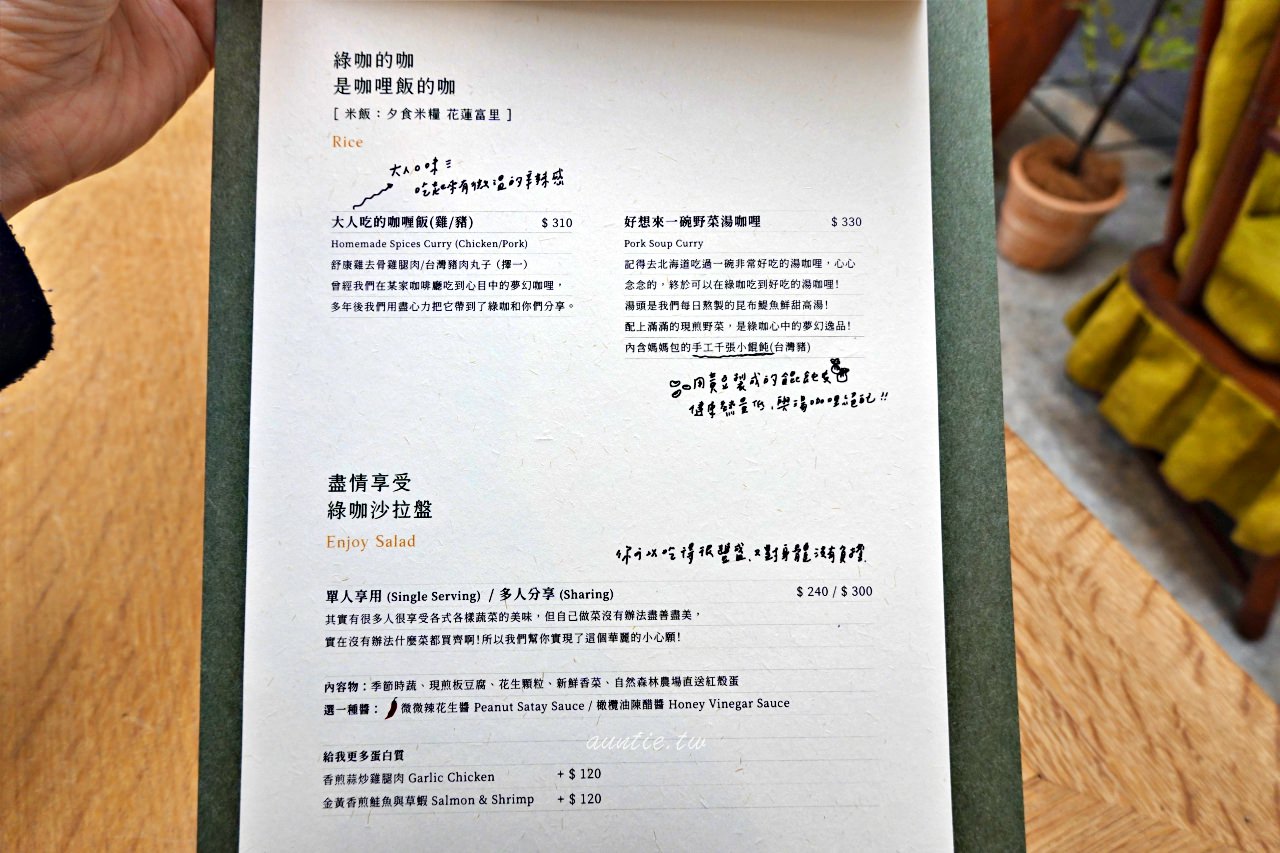 綠咖的咖
是咖哩飯的咖
[ 米飯：夕食米糧 花蓮富里 ]
Rice
大人口味
吃起來有微溫的辛辣感
大人吃的咖喱飯(雞/豬) $ 310
Homemade Spices Curry (Chicken/Pork)
舒康雞去骨雞腿肉/台灣豬肉丸子（擇一）
曾經我們在某家咖啡廳吃到心目中的夢幻咖哩，
多年後我們用盡心力把它帶到了綠咖和你們分享。
好想來一碗野菜湯咖哩 $ 330
Pork Soup Curry
記得去北海道吃過一碗非常好吃的湯咖哩，心心
念念的，終於可以在綠咖吃到好吃的湯咖哩!
湯頭是我們每日熬製的昆布鯷魚鮮甜高湯!
配上滿滿的現煎野菜，是綠咖心中的夢幻逸品!
內含媽媽包的手工千張小餛飩(台灣豬)
用黃豆製成的餛飩皮
健康熱量低、與湯咖哩絕配!!
盡情享受
綠咖沙拉盤
Enjoy Salad
你可以吃得很豐盛、又對身體沒有負擔
單人享用 (Single Serving) / 多人分享 (Sharing) $ 240 / $ 300
其實有很多人很享受各式各樣蔬菜的美味，但自己做菜沒有辦法盡善盡美，
實在沒有辦法什麼菜都買齊啊!所以我們幫你實現了這個華麗的小心願!
內容物：季節時蔬、現煎板豆腐、花生顆粒、新鮮香菜、自然森林農場直送紅殼蛋
選一種醬： 微微辣花生醬 Peanut Satay Sauce / 橄欖油陳醋醬 Honey Vinegar Sauce
auntie.tw
給我更多蛋白質
香煎蒜炒雞腿肉 Garlic Chicken + $ 120
金黃香煎鮭魚與草蝦 Salmon & Shrimp + $ 120